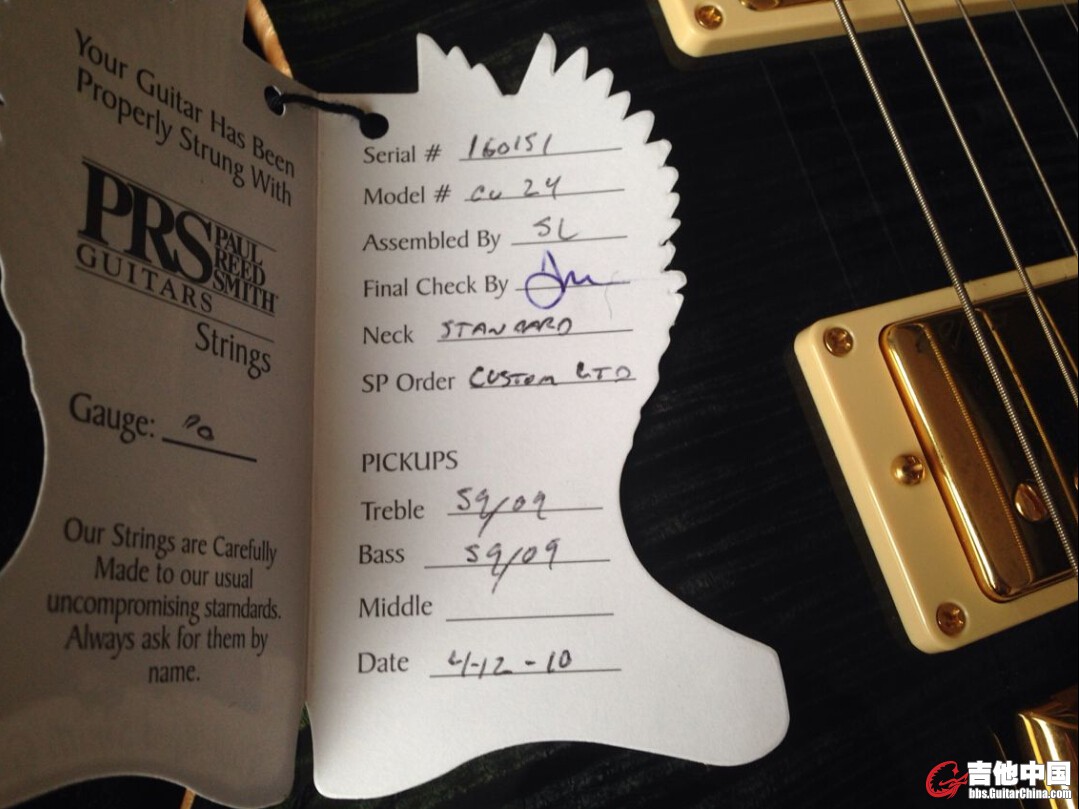 Your Guitar Has Been
Properly Strung With
PRS PAUL
REED
SMITH
GUITARS
Strings
Gauge:
Our Strings are Carefully
Made to our usual
uncompromising starndards.
Always ask for them by
name.
Serial # 160151
Model # cu 24
Assembled By SL
Final Check By
Neck STANDARD
SP Order CUSTOM LTD
PICKUPS
Treble 59/09
Bass 59/09
Middle
Date 4-12-10
吉他中国
bbs.GuitarChina.com